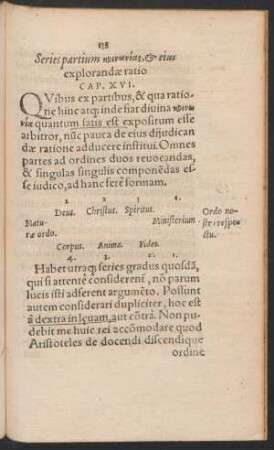 118
Series partium κοινωνίας, & eius
explorandæ ratio
CAP. XVI.
QVibus ex partibus, & qua ratio-
ne hinc atq; inde fiat diuina κοινω
νία quantum satis est expositum esse
arbitror, nūc pauca de eius dijudican
dæ ratione adducere institui. Omnes
partes ad ordines duos reuocandas, &
& singulas singulis componēdas es-
se iudico, ad hanc ferè formam.
1. 2. 3. 4.
Deus. Christus. Spiritus.
Ministerium
Natu-
ræ ordo.
Ordo no-
stri respe-
ctu.
Corpus. Anima. Fides.
4. 3. 2. 1.
Habet utraq; series gradus quosdā,
qui si attentè considerent, nō parum
lucis isti adferent argumēto. Possunt
autem considerari dupliciter, hoc est
â dextra in lęuam, aut cōtrà. Non pu-
debit me huic rei accōmodare quod
Aristoteles de docendi discendique
ordine